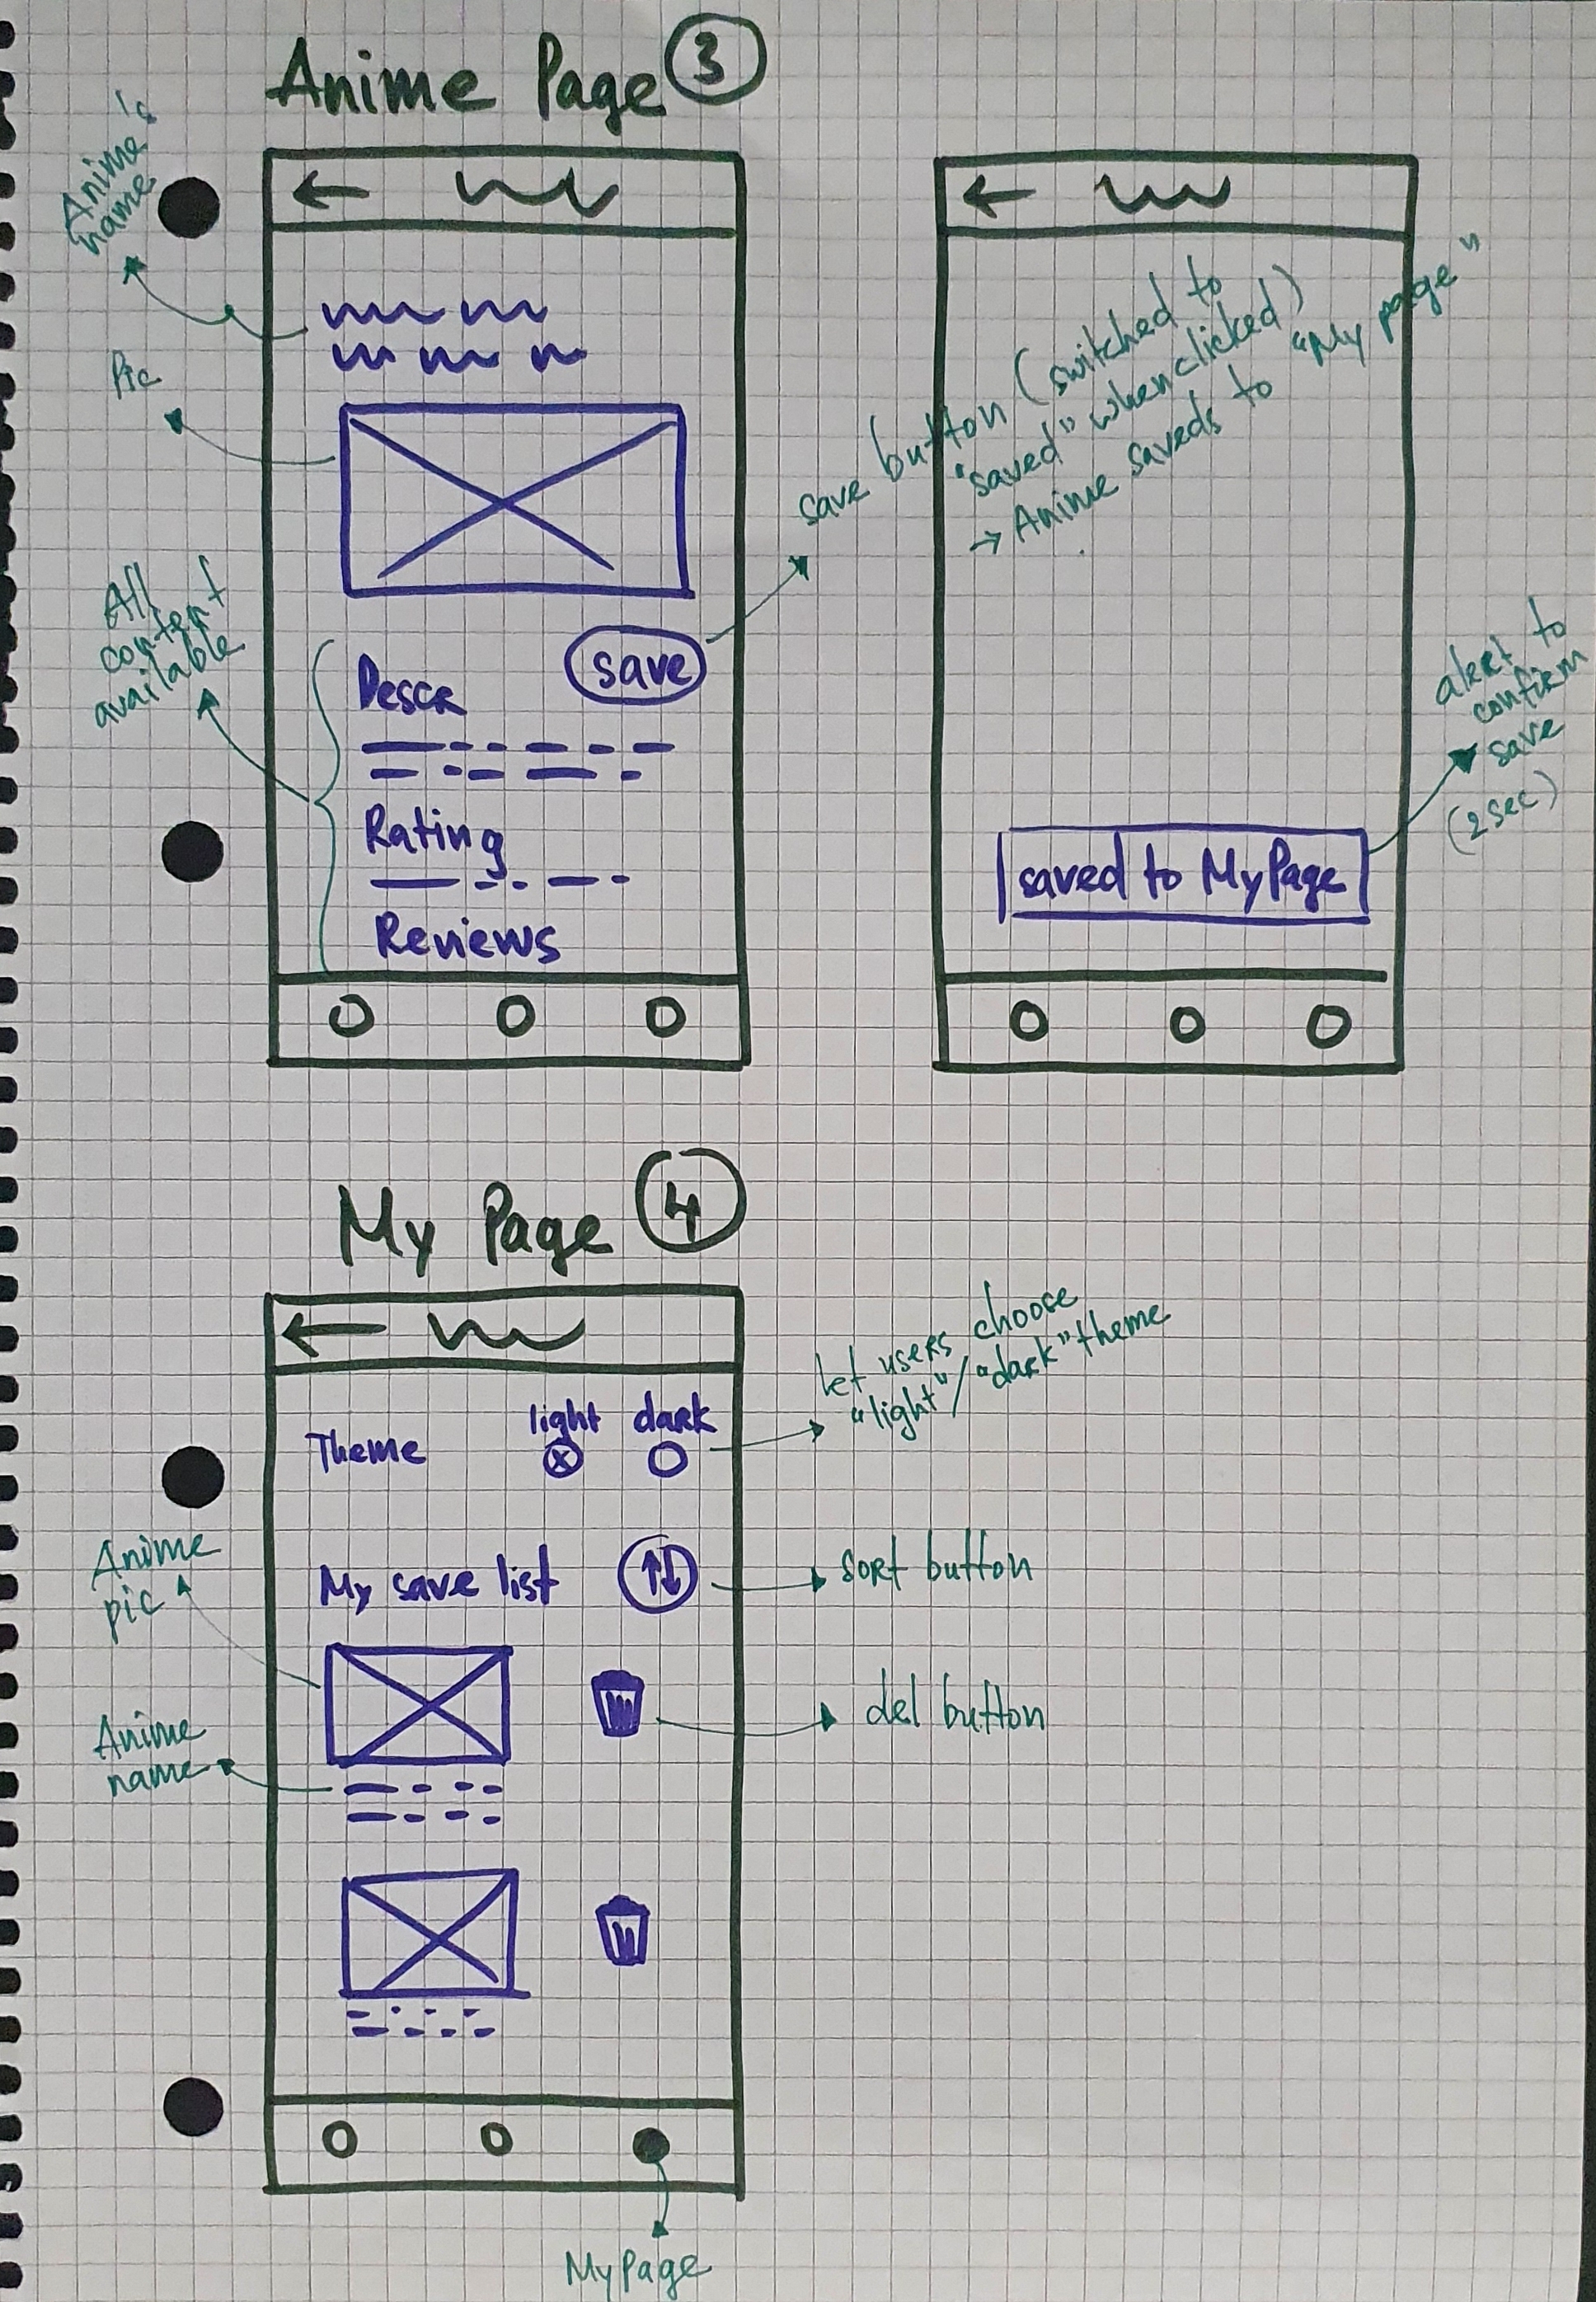 Anime Page 3
Anime's
name
Pic
All
content
available
Descr
save
Rating
Reviews
save button (switched to
"saved" when clicked)
→ Anime saveds to "My page"
saved to MyPage
alert to
confirm
save
(2sec)
My Page 4
Theme
light
dark
let users choose
"light"/"dark" theme
My save list
sort button
Anime
pic
del button
Anime
name
MyPage